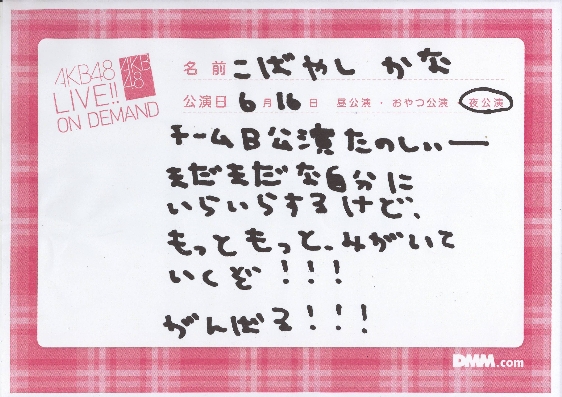 AKB48
LIVE!!
ON DEMAND
AKB
48
名前 こばやし かな
公演日 6月16日 昼公演・おやつ公演 夜公演
チームB公演たのしぃー
まだまだな自分に
いらいらするけど、
もっともっと、みがいて
いくぞ!!!
がんばる!!!
DMM.com